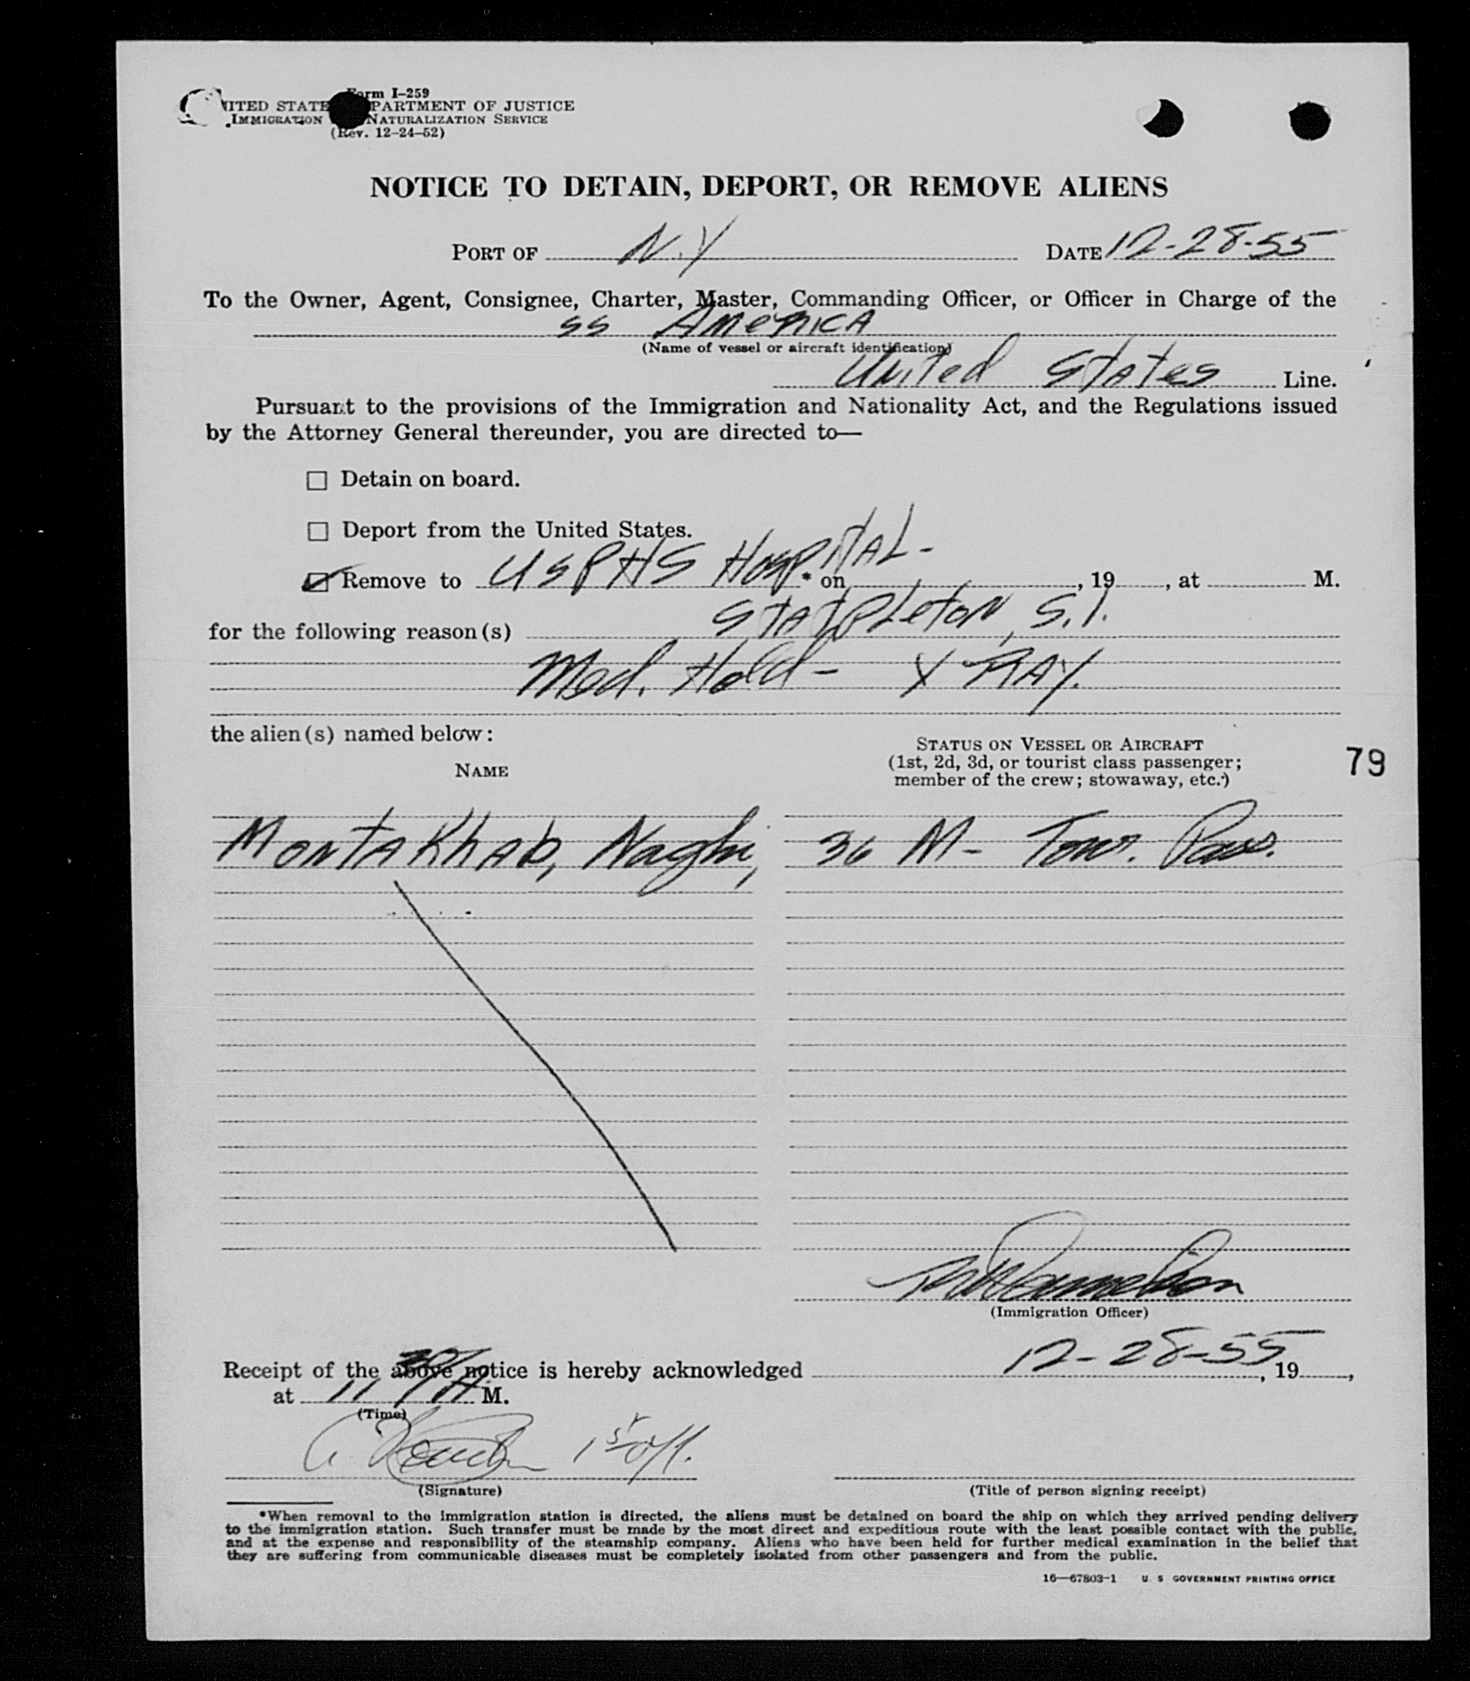 Form I-259
UNITED STATES DEPARTMENT OF JUSTICE
IMMIGRATION NATURALIZATION SERVICE
(Rev. 12-24-52)
NOTICE TO DETAIN, DEPORT, OR REMOVE ALIENS
PORT OF N.Y DATE 12-28-55
To the Owner, Agent, Consignee, Charter, Master, Commanding Officer, or Officer in Charge of the
SS AMERICA
(Name of vessel or aircraft identification)
United States Line.
Pursuant to the provisions of the Immigration and Nationality Act, and the Regulations issued
by the Attorney General thereunder, you are directed to—
Detain on board.
Deport from the United States.
Remove to USPHS HOSPITAL - * on , 19 , at M.
for the following reason(s) STAPLETON, S.I.
Med. Hold - X RAY.
the alien(s) named below:
NAME
STATUS ON VESSEL OR AIRCRAFT
(1st, 2d, 3d, or tourist class passenger;
member of the crew; stowaway, etc.)
79
MONTAKHAB, Naghi, 36 M - Tour. Pass.
(Immigration Officer)
Receipt of the above notice is hereby acknowledged 12-28-55, 19 ,
at 11 30/A M.
(Time)
1st off.
(Signature)
(Title of person signing receipt)
*When removal to the immigration station is directed, the aliens must be detained on board the ship on which they arrived pending delivery
to the immigration station. Such transfer must be made by the most direct and expeditious route with the least possible contact with the public,
and at the expense and responsibility of the steamship company. Aliens who have been held for further medical examination in the belief that
they are suffering from communicable diseases must be completely isolated from other passengers and from the public.
16—67803-1 U. S GOVERNMENT PRINTING OFFICE